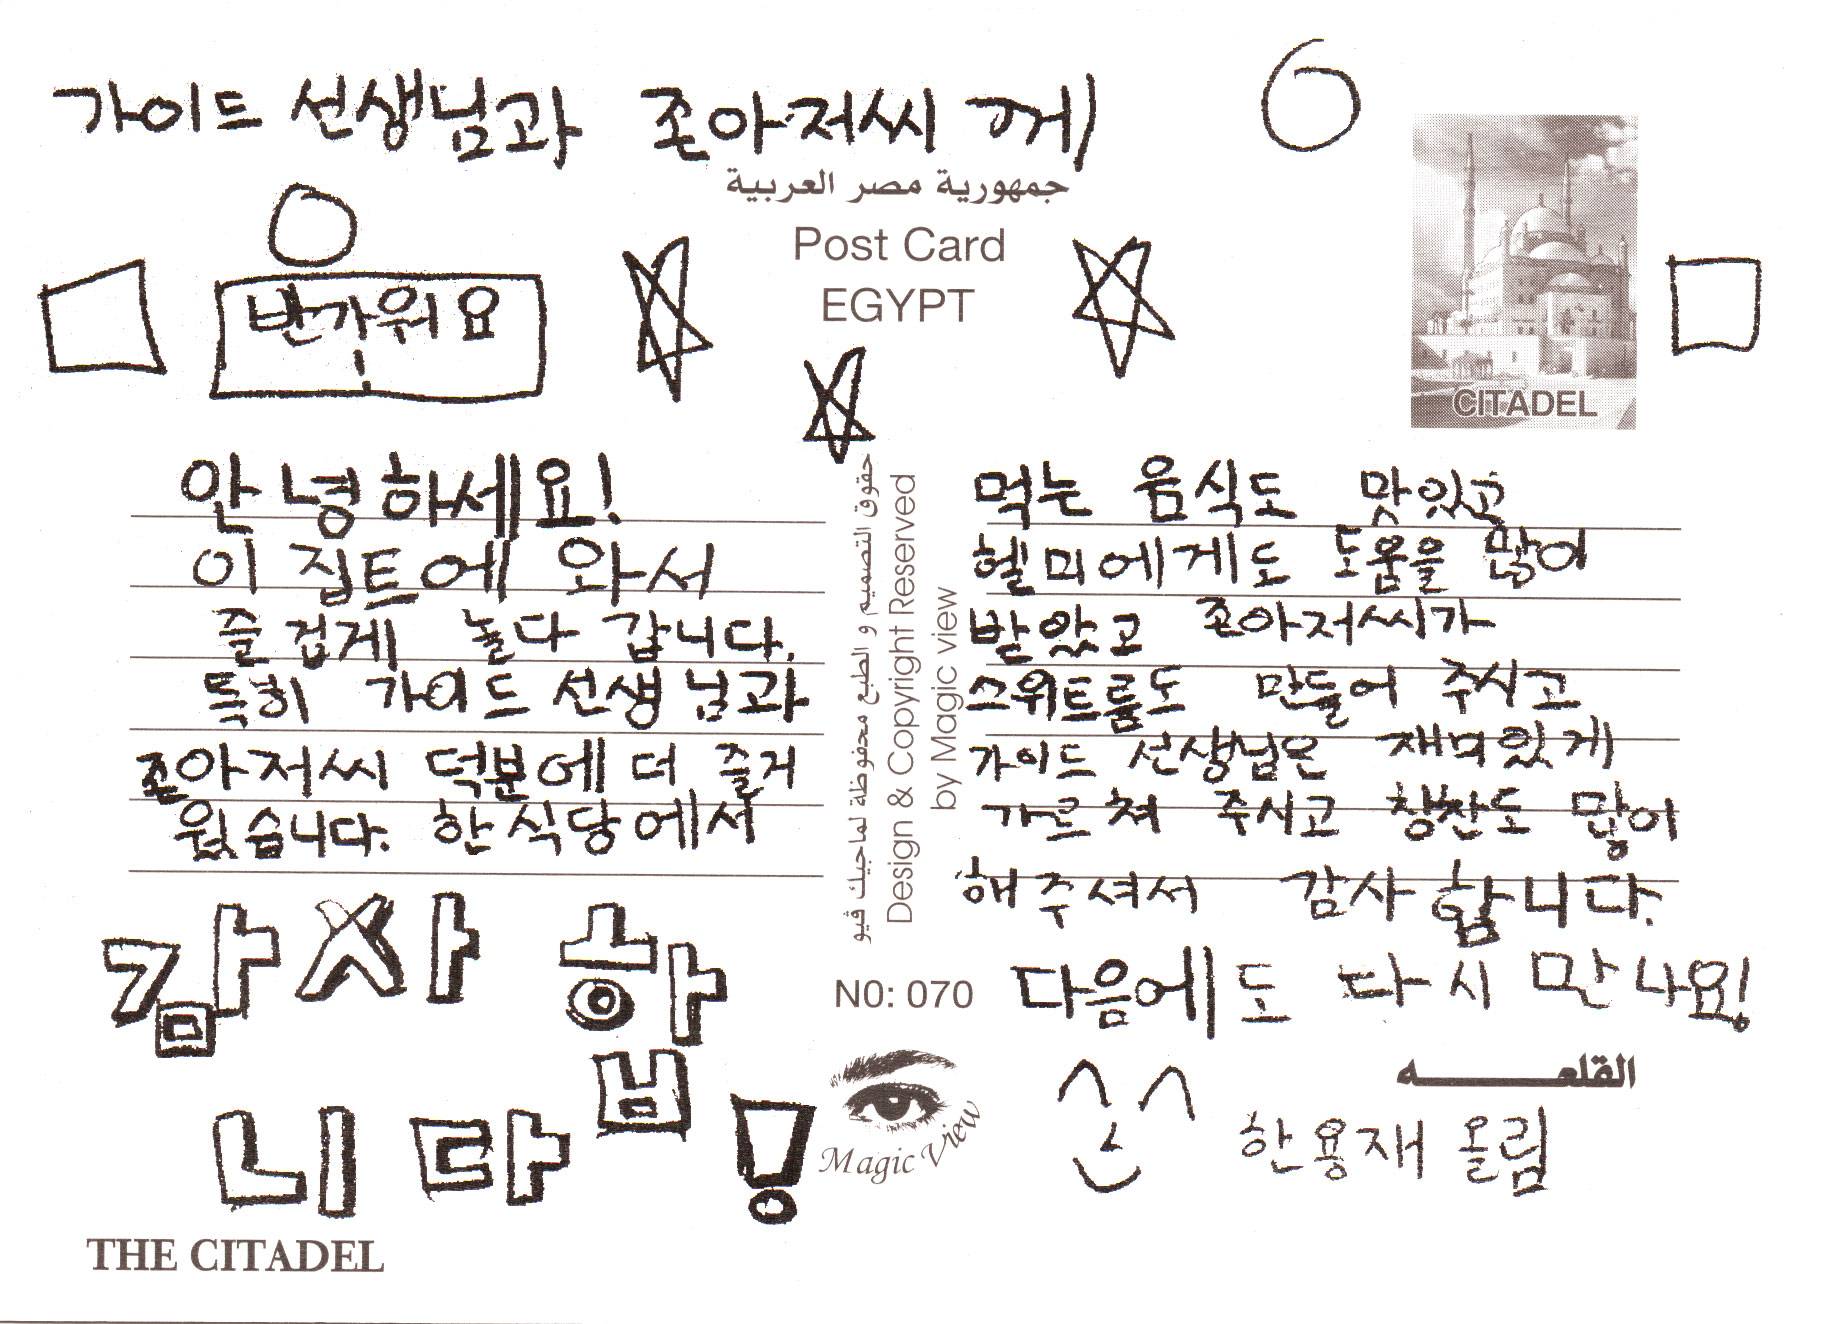 가이드 선생님과 존아저씨 께
جمهورية مصر العربية
Post Card
EGYPT
반가워요!
CITADEL
안녕하세요!
이집트에 와서
즐겁게 놀다 갑니다.
특히 가이드 선생님과
존아저씨 덕분에 더 즐거
웠습니다. 한식당에서
حقوق التصميم و الطبع محفوظة لماجيك ڤيو
Design & Copyright Reserved
by Magic view
먹는 음식도 맛있고
헬미에게도 도움을 많이
받았고 존아저씨가
스위트룸도 만들어 주시고
가이드 선생님은 재미있게
가르쳐 주시고 칭찬도 많이
해주셔서 감사합니다.
다음에도 다시 만나요!
감사합
니다!
N0: 070
Magic View
القلعه
한용재 올림
THE CITADEL